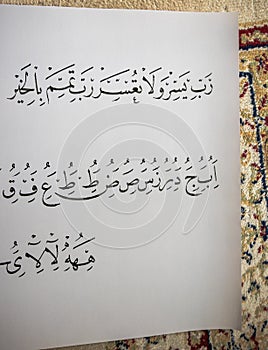 رَبِّ يَسِّرْ وَلَا تُعَسِّرْ رَبِّ تَمِّمْ بِالْخَيْرِ
اُ بُ جُ دُ رُ زُ سُ صُ ضُ طُ طُ عُ فُ قُ
هُهُهُ لُا لُا یُ